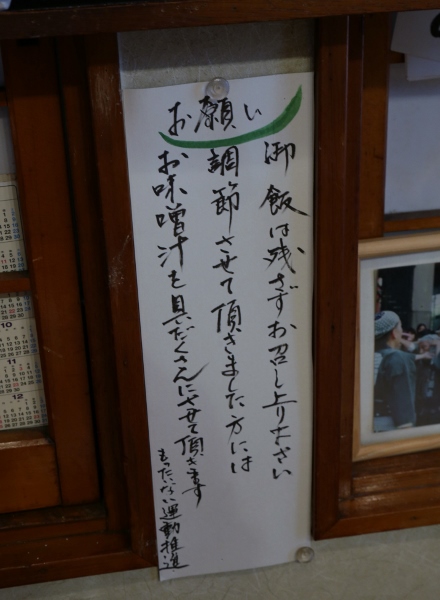 お願い
御飯は残さずお召し上りなさい
調節させて頂きました方には
お味噌汁を具だくさんにさせて頂きます
もったいない運動推進
10
11
12